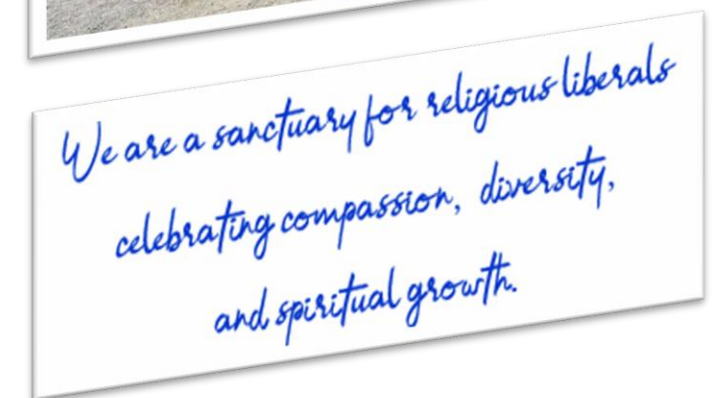 We are a sanctuary for religious liberals
celebrating compassion, diversity,
and spiritual growth.